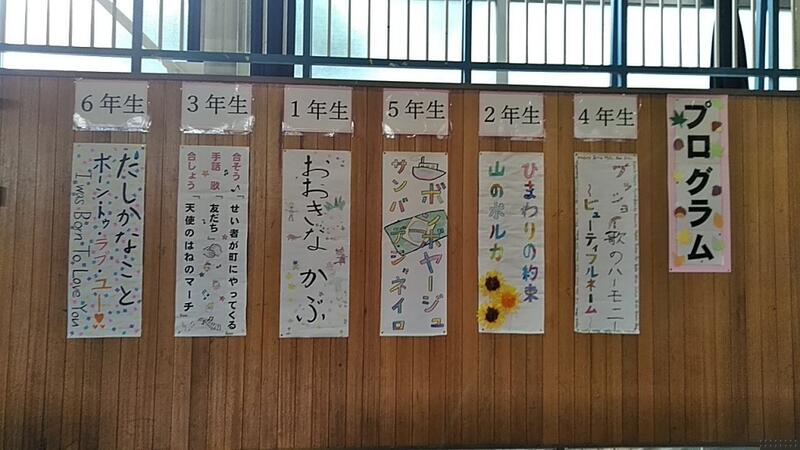 プログラム
4年生
ブラッシュ!歌のハーモニー
～ビューティフルネーム～
2年生
ひまわりの約束
山のポルカ
5年生
ボンボヤージュ
サンバ デ ジャネイロ
1年生
おおきな かぶ
3年生
合そう♪「せい者が町にやってくる」
手話 歌「友だち」
合しょう「天使のはねのマーチ」
6年生
たしかなこと
ボーン・トゥ・ラブ・ユー♥
I Was Born To Love You